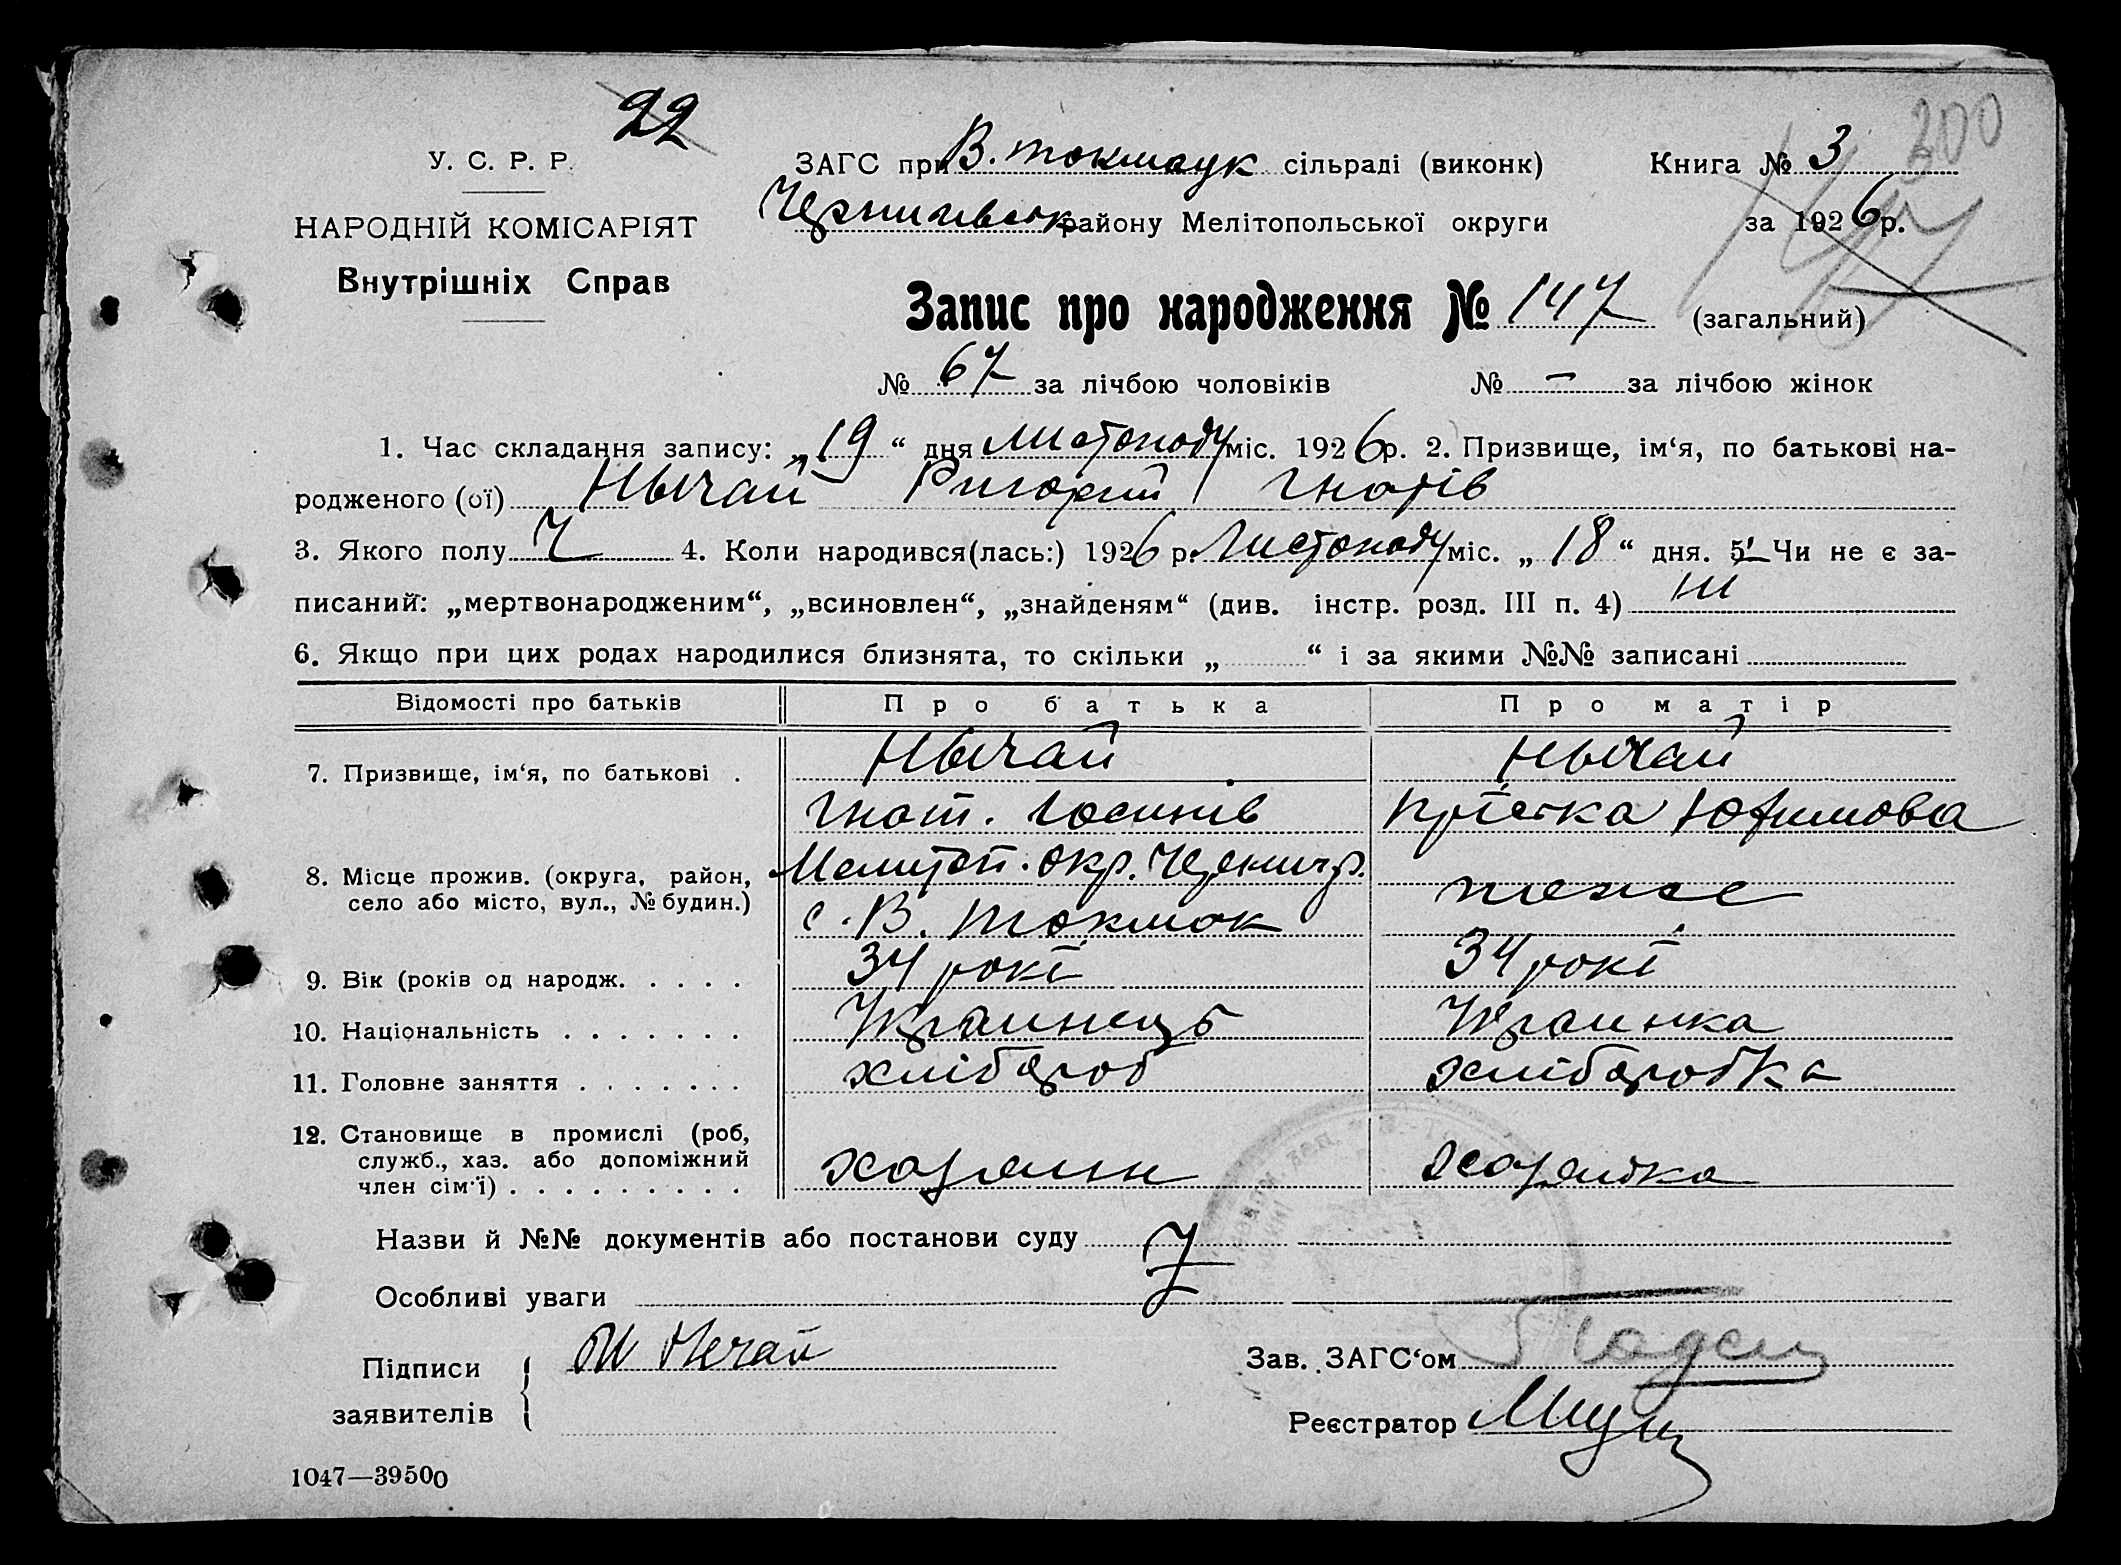 22
200
У. С. Р. Р.
ЗАГС при В. токмаук сільраді (виконк)
Книга № 3
НАРОДНІЙ КОМІСАРІЯТ
Чернигівськ району Мелітопольської округи
за 1926 р.
Внутрішніх Справ
147
Запис про народження № 147 (загальний)
№ 67 за лічбою чоловіків № – за лічбою жінок
1. Час складання запису: „19“ дня листопаду міс. 1926 р. 2. Призвище, ім‘я, по батькові на-
родженого (ої) Нычай Григорий Гнатів
3. Якого полу Ч 4. Коли народився(лась:) 1926 р. Листопаду міс. „18“ дня. 5. Чи не є за-
писаний: „мертвонародженим“, „всиновлен“, „знайденям“ (див. інстр. розд. III п. 4) ні
6. Якщо при цих родах народилися близнята, то скільки „ “ і за якими №№ записані
Відомості про батьків Про батька Про матір
7. Призвище, ім‘я, по батькові . Нычай Нычай
Гнат. Iосипів Юхимова
8. Місце прожив. (округа, район, Мелитоп. окр. Черниг р. тоже
село або місто, вул., № будин.) с. В. Токмак
9. Вік (років од народж. . . . . 34 рокі 34 рокі
10. Національність . . . . . . . Украинець Украинка
11. Головне заняття . . . . . . . хлібароб хлібаробка
12. Становище в промислі (роб,
служб., хаз. або допоміжний хазяин хазяйка
член сім‘ї) . . . . . . . . .
Назви й №№ документів або постанови суду
Особливі уваги
Підписи И Нечай
Зав. ЗАГС‘ом
заявителів
Реєстратор
1047—39500